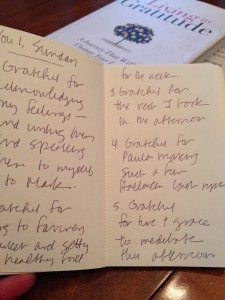 Living in
Gratitude
Nov 1, Sunday
Grateful for
acknowledging
my feelings –
and writing them
and speaking
them to myself
to Mark.
Grateful for
to farmers
and getting
healthy food
for the week.
3. Grateful for
the rest I took
in the afternoon
4. Grateful for
Paula
such a fun
Halloween last night
5. Grateful
for time & grace
to meditate
this afternoon